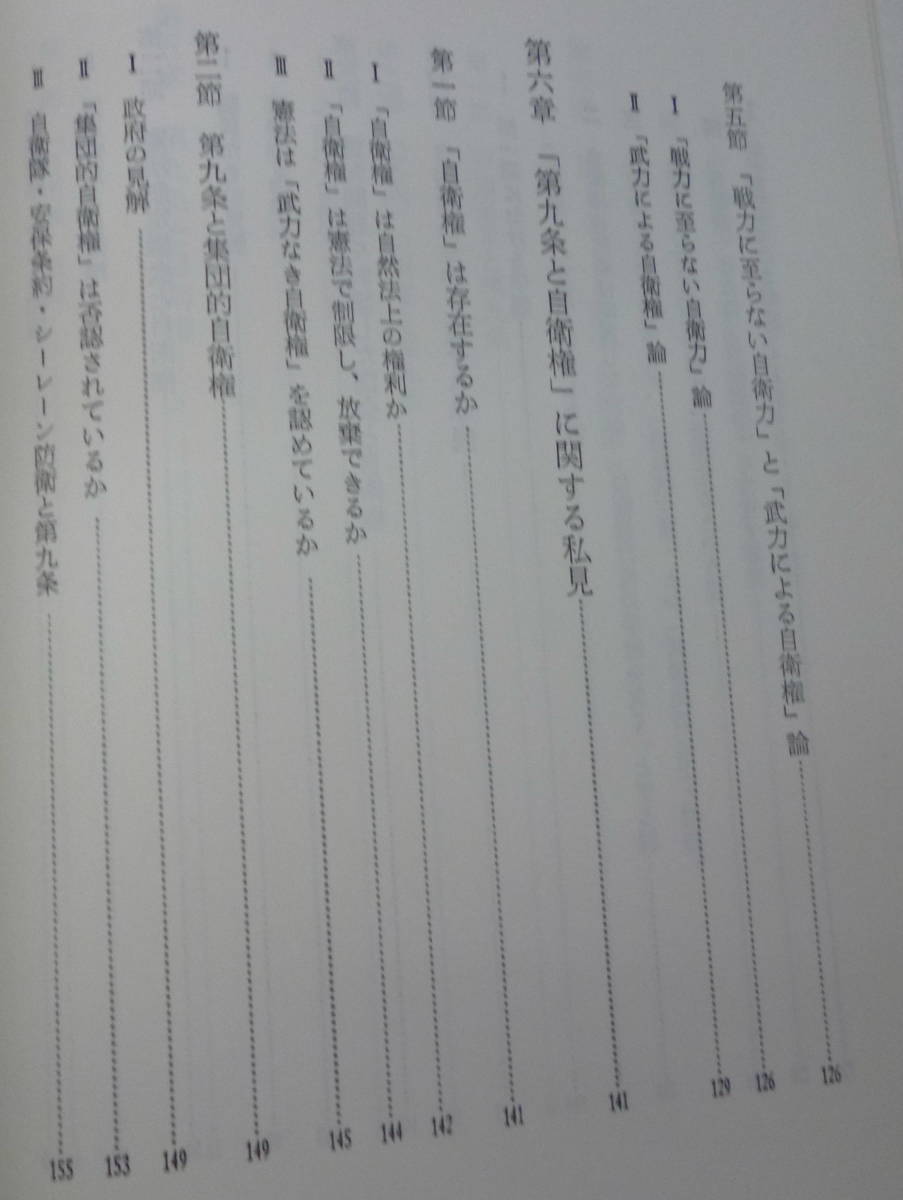 第五節　「戦力に至らない自衛力」と「武力による自衛権」論 126
Ⅰ　「戦力に至らない自衛力」論 126
Ⅱ　「武力による自衛権」論 129
第六章　「第九条と自衛権」に関する私見 141
第一節　「自衛権」は存在するか 141
Ⅰ　「自衛権」は自然法上の権利か 142
Ⅱ　「自衛権」は憲法で制限し、放棄できるか 144
Ⅲ　憲法は「武力なき自衛権」を認めているか 145
第二節　第九条と集団的自衛権 149
Ⅰ　政府の見解 149
Ⅱ　「集団的自衛権」は否認されているか 153
Ⅲ　自衛隊・安保条約・シーレーン防衛と第九条 155